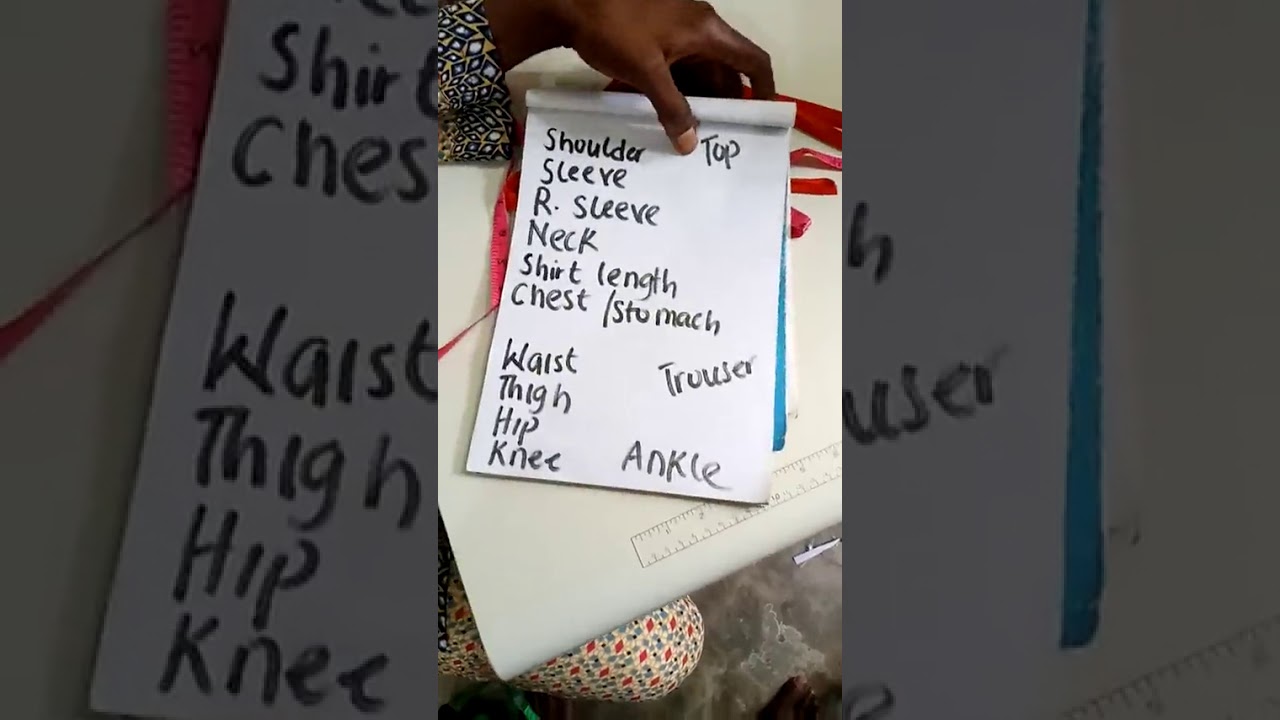 Shoulder Top
Sleeve
R. Sleeve
Neck
Shirt length
Chest /Stomach
Waist Trouser
Thigh
Hip
Knee Ankle